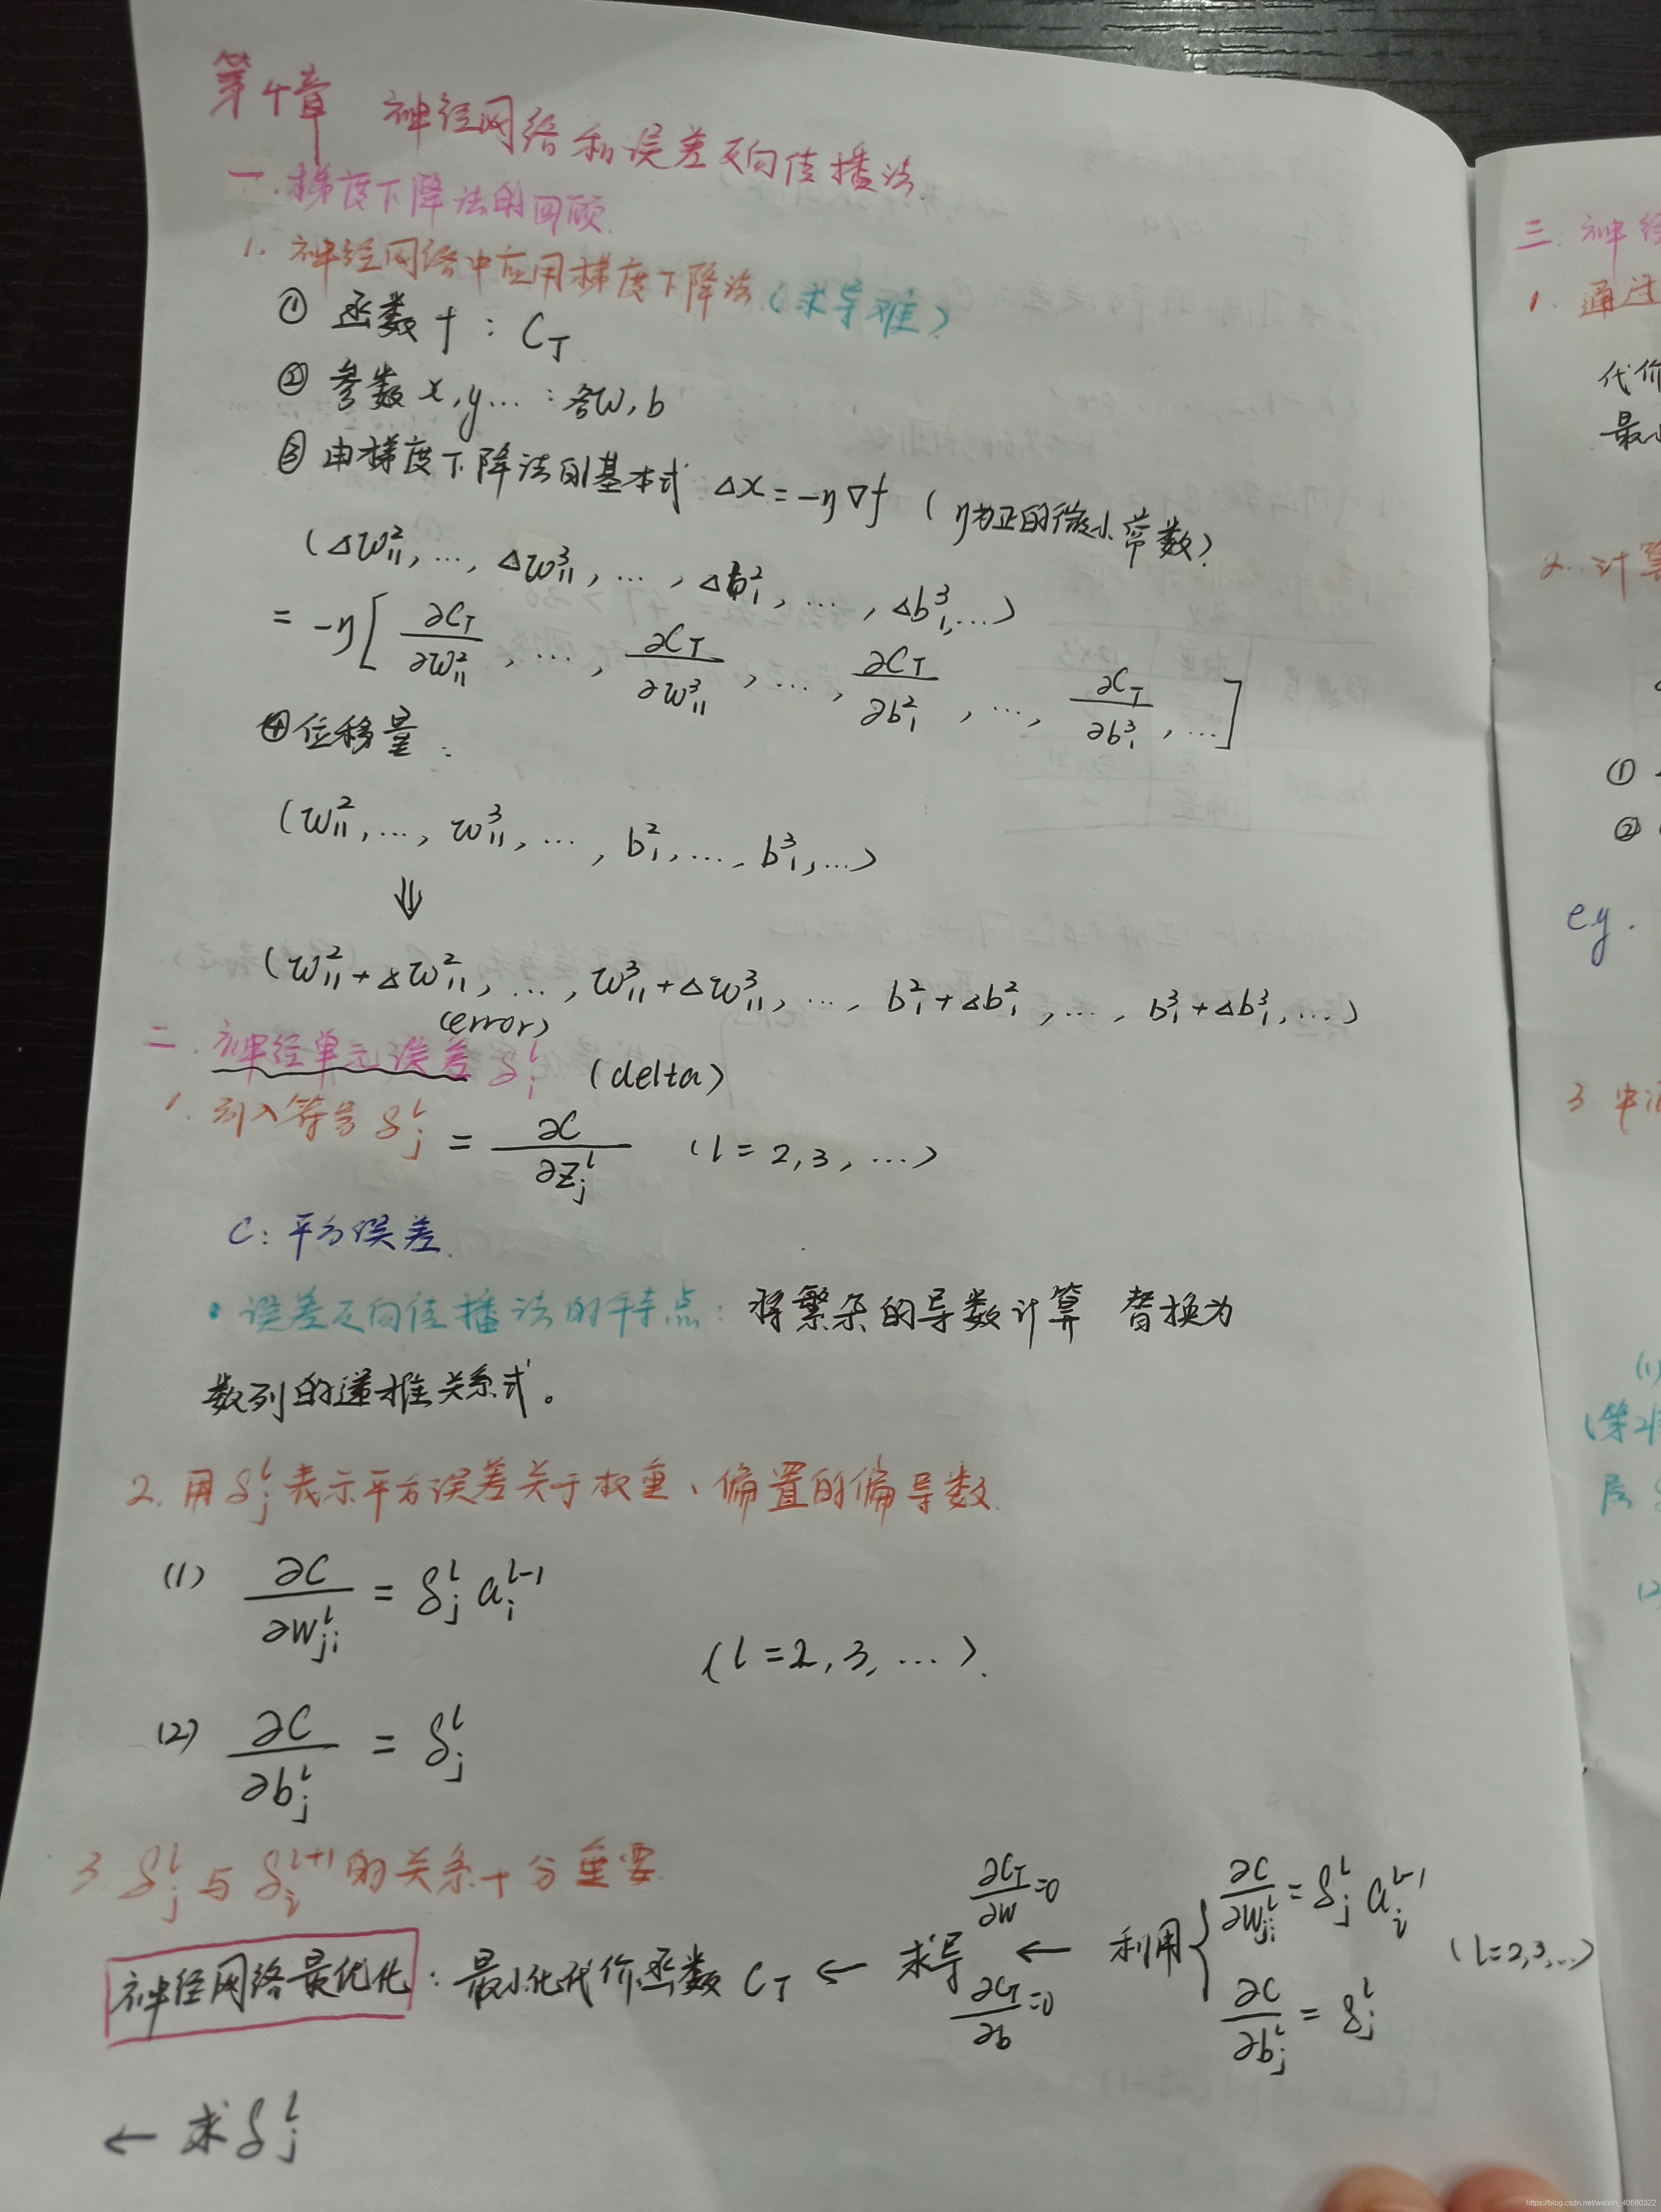 第4章 神经网络和误差反向传播法.
一.梯度下降法的回顾.
1. 神经网络中应用梯度下降法(求导难)
① 函数 f : C_T
② 参数 x,y... : 各w,b
③ 由梯度下降法的基本式 Δx = -η∇f (η为正的微小常数)
(Δw²₁₁, ..., Δw³₁₁, ..., Δb²₁, ..., Δb³₁, ...)
= -η[∂C_T/∂w²₁₁, ..., ∂C_T/∂w³₁₁, ..., ∂C_T/∂b²₁, ..., ∂C_T/∂b³₁, ...]
④位移量:
(w²₁₁, ..., w³₁₁, ..., b²₁, ..., b³₁, ...)
⇓
(w²₁₁+Δw²₁₁, ..., w³₁₁+Δw³₁₁, ..., b²₁+Δb²₁, ..., b³₁+Δb³₁, ...)
(error)
二. 神经单元误差 δ_i^l (delta)
1. 引入符号 δ_j^l = ∂C/∂z_j^l (l = 2,3, ...)
C: 平方误差.
• 误差反向传播法的特点: 将繁杂的导数计算 替换为
数列的递推关系式。
2. 用δ_j^l表示平方误差关于权重、偏置的偏导数.
(1) ∂C/∂w_ji^l = δ_j^l a_i^(l-1)
(l=2,3, ...).
(2) ∂C/∂b_j^l = δ_j^l
3 δ_j^l 与 δ_i^(l+1) 的关系十分重要.
神经网络最优化 : 最小化代价函数 C_T ← 求导 ∂C_T/∂w=0 ∂C_T/∂b=0 ← 利用{ ∂C/∂w_ji^l = δ_j^l a_i^(l-1) ∂C/∂b_j^l = δ_j^l (l=2,3,...)
← 求δ_j^l
三. 神经
1. 通过
代价
最小
2. 计算
①
②
eg.
3
(1)
(第2
层
(2
https://blog.csdn.net/weixin_40680322